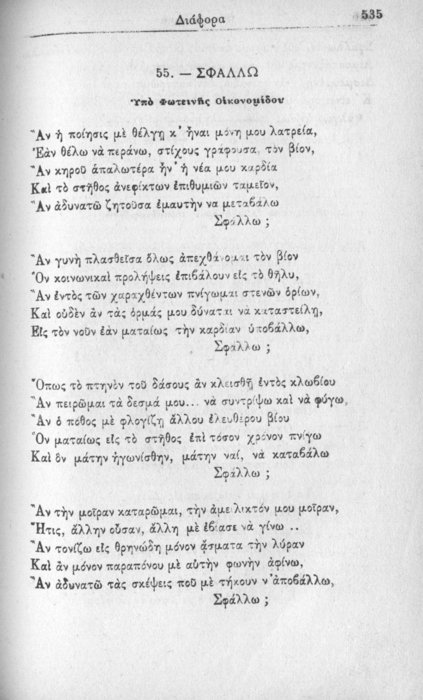 Διάφορα 535
55. — ΣΦΑΛΛΩ
Ὑπὸ Φωτεινῆς Οἰκονομίδου
Ἂν ἡ ποίησις μὲ θέλγῃ κ' ἦναι μόνη μου λατρεία,
Ἐὰν θέλω νὰ περάνω, στίχους γράφουσα, τὸν βίον,
Ἂν κηροῦ ἁπαλωτέρα ἦν' ἡ νέα μου καρδία
Καὶ τὸ στῆθος ἀνεφίκτων ἐπιθυμιῶν ταμεῖον,
Ἂν ἀδυνατῶ ζητοῦσα ἐμαυτὴν νὰ μεταβάλω
Σφάλλω ;
Ἂν γυνὴ πλασθεῖσα ὅλως ἀπεχθάνομαι τὸν βίον
Ὃν κοινωνικαὶ προλήψεις ἐπιβάλουν εἰς τὸ θῆλυ,
Ἂν ἐντὸς τῶν χαραχθέντων πνίγωμαι στενῶν ὁρίων,
Καὶ οὐδὲν ἂν τὰς ὁρμάς μου δύναται νὰ καταστείλῃ,
Εἰς τὸν νοῦν ἐὰν ματαίως τὴν καρδίαν ὑποβάλλω,
Σφάλλω ;
Ὅπως τὸ πτηνὸν τοῦ δάσους ἂν κλεισθῇ ἐντὸς κλωβίου
Ἂν πειρῶμαι τὰ δεσμά μου... νὰ συντρίψω καὶ νὰ φύγω,
Ἂν ὁ πόθος μὲ φλογίζῃ ἄλλου ἐλευθέρου βίου
Ὃν ματαίως εἰς τὸ στῆθος ἐπὶ τόσον χρόνον πνίγω
Καὶ ὃν μάτην ἠγωνίσθην, μάτην ναί, νὰ καταβάλω
Σφάλλω ;
Ἂν τὴν μοῖραν καταρῶμαι, τὴν ἀμείλικτόν μου μοῖραν,
Ἥτις, ἄλλην οὖσαν, ἄλλη μὲ ἐβίασε νὰ γίνω ..
Ἂν τονίζω εἰς θρηνώδη μόνον ᾄσματα τὴν λύραν
Καὶ ἂν μόνον παραπόνου μὲ αὐτὴν φωνὴν ἀφίνω,
Ἂν ἀδυνατῶ τὰς σκέψεις ποῦ μὲ τήκουν ν' ἀποβάλλω,
Σφάλλω ;